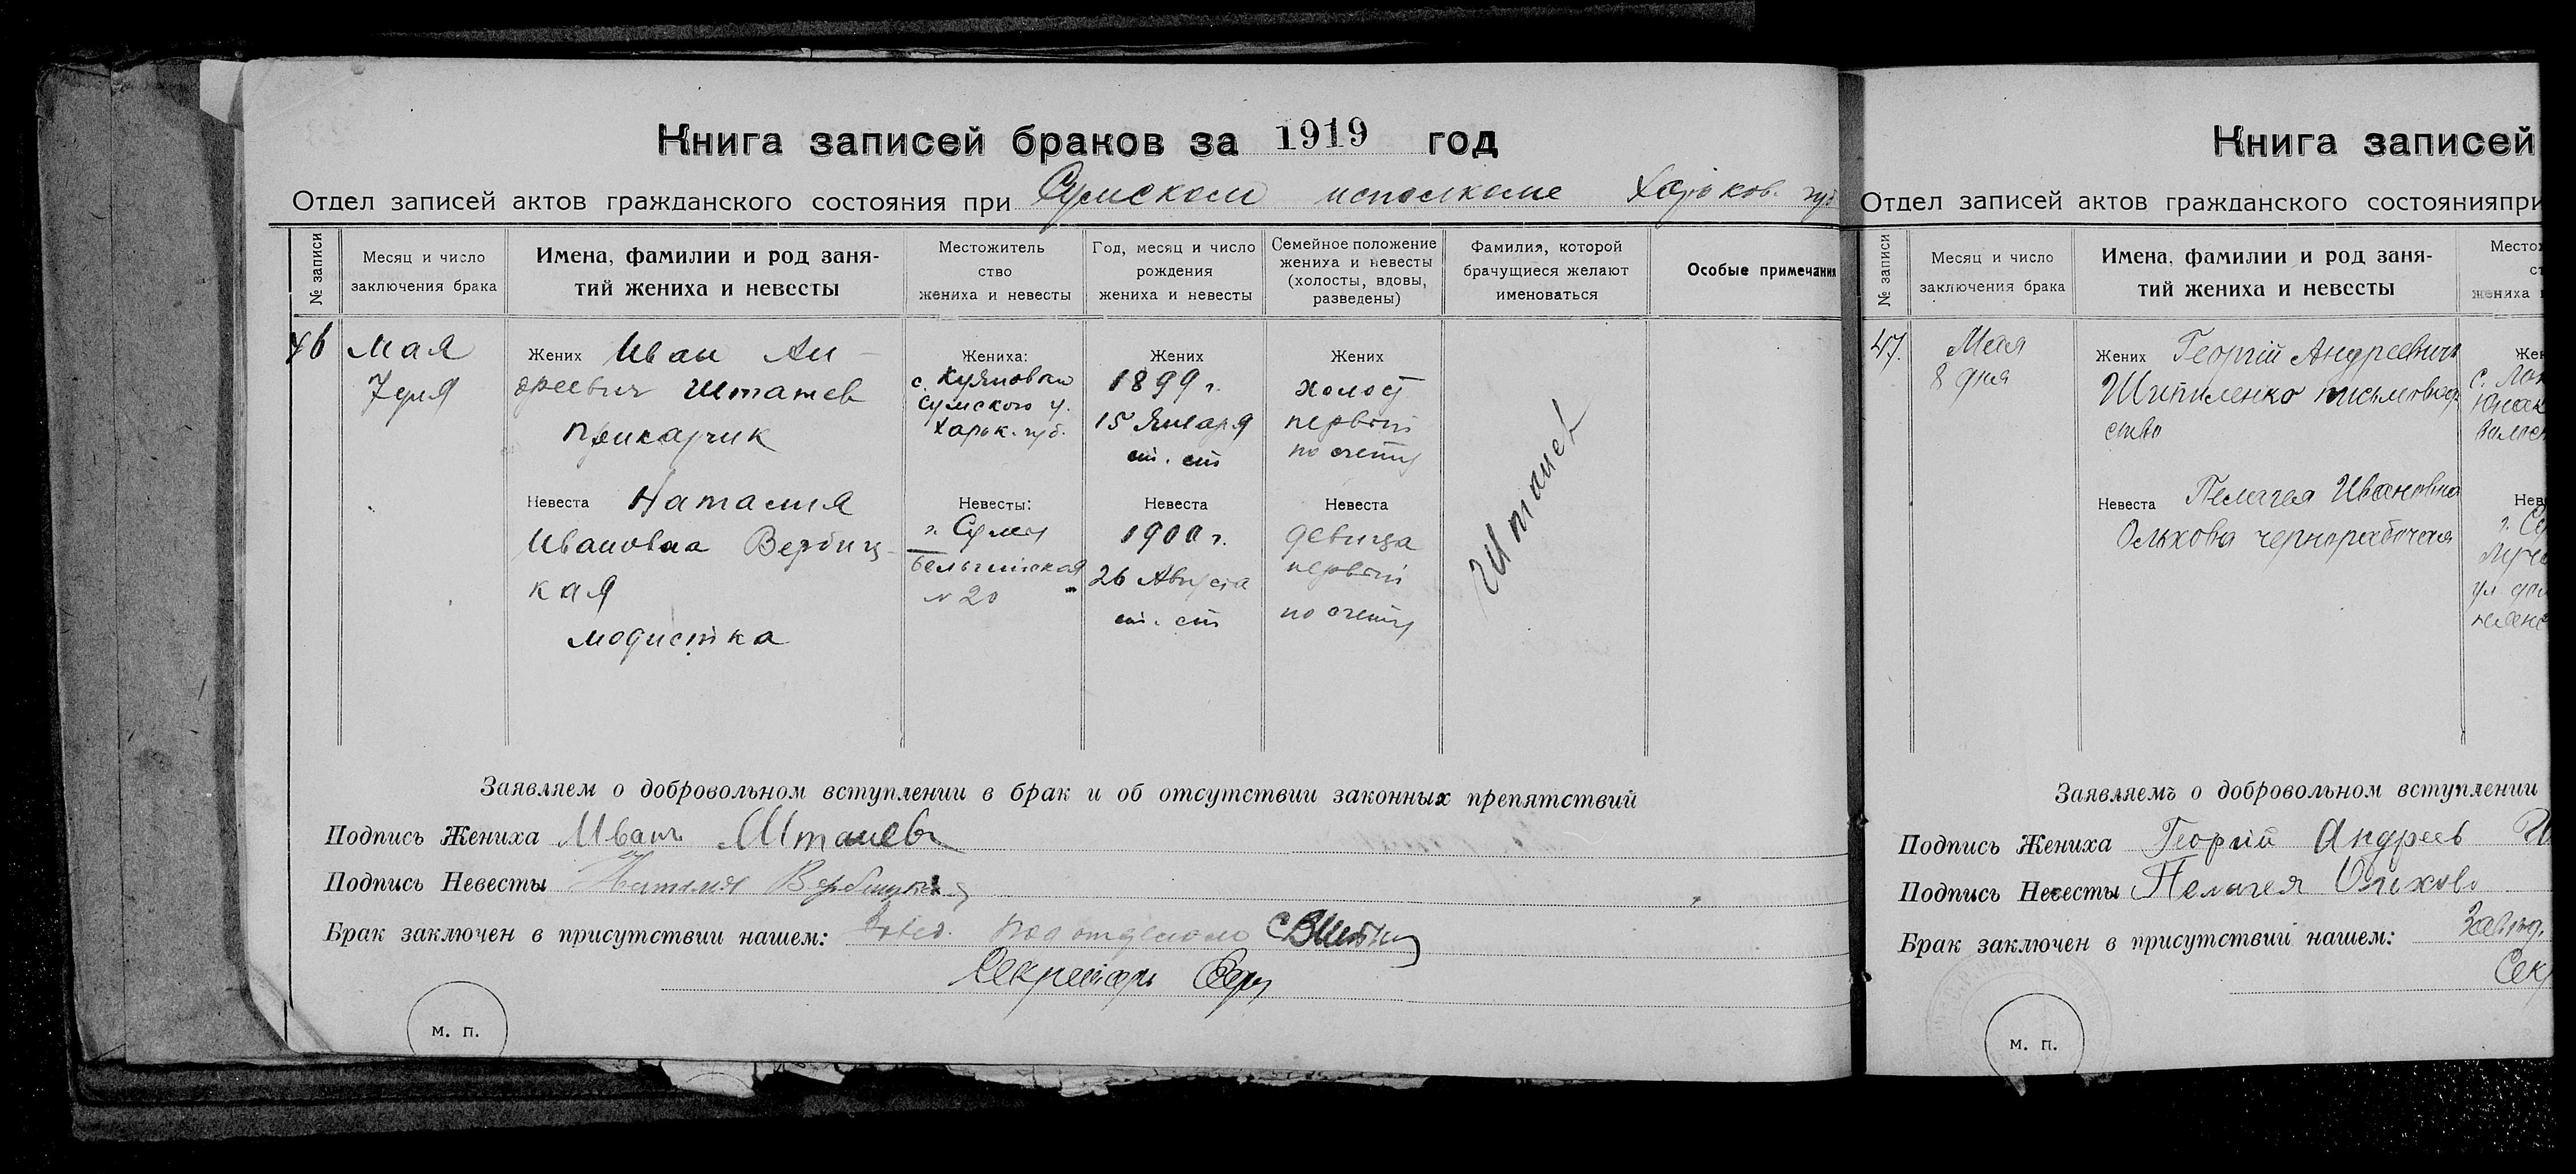 Книга записей браков за 1919 год
Отдел записей актов гражданского состояния при Сумском исполкоме Харьков. губ
№ записи
Месяц и число
заключения брака
Имена, фамилии и род заня-
тий жениха и невесты
Местожитель
ство
жениха и невесты
Год, месяц и число
рождения
жениха и невесты
Семейное положение
жениха и невесты
(холосты, вдовы,
разведены)
Фамилия, которой
брачущиеся желают
именоваться
Особые примечания
46
Мая
7 дня
Жених Иван Ан-
дреевич Штанев
приказчик
Жениха:
с. Куяновки
Сумского у.
Харьк. губ.
Жених
1899 г.
15 Января
ст. ст
Жених
холост
первый
по счету
Штанев
Невеста Наталия
Ивановна Вербиц-
кая
модистка
Невесты:
г. Сумы
Бельгийская
№ 20
Невеста
1900 г.
26 Августа
ст. ст
Невеста
девица
первый
по счету
Заявляем о добровольном вступлении в брак и об отсутствии законных препятствий
Подпись Жениха Иванъ Штаневъ
Подпись Невесты Наталия Вербицкая
Брак заключен в присутствии нашем: Завед. подотделом
Секретарь
м. п.
Книга записей
Отдел записей актов гражданского состоянияпри
№ записи
Месяц и число
заключения брака
Имена, фамилии и род заня-
тий жениха и невесты
Место
ст
жениха
47.
Мая
8 дня
Жених Георгій Андреевичъ
Шипиленко письмовод
ство
Жен
с.
Юнак
волос
Невеста Пелагея Ивановна
Ольхова чернорабочая
Нев
г. Су
ул
Заявляемъ о добровольном вступлении
Подпись Жениха Георгій Андреев
Подпись Невесты Пелагея Ольхова
Брак заключен в присутствии нашем: Завед.
Сек
м. п.